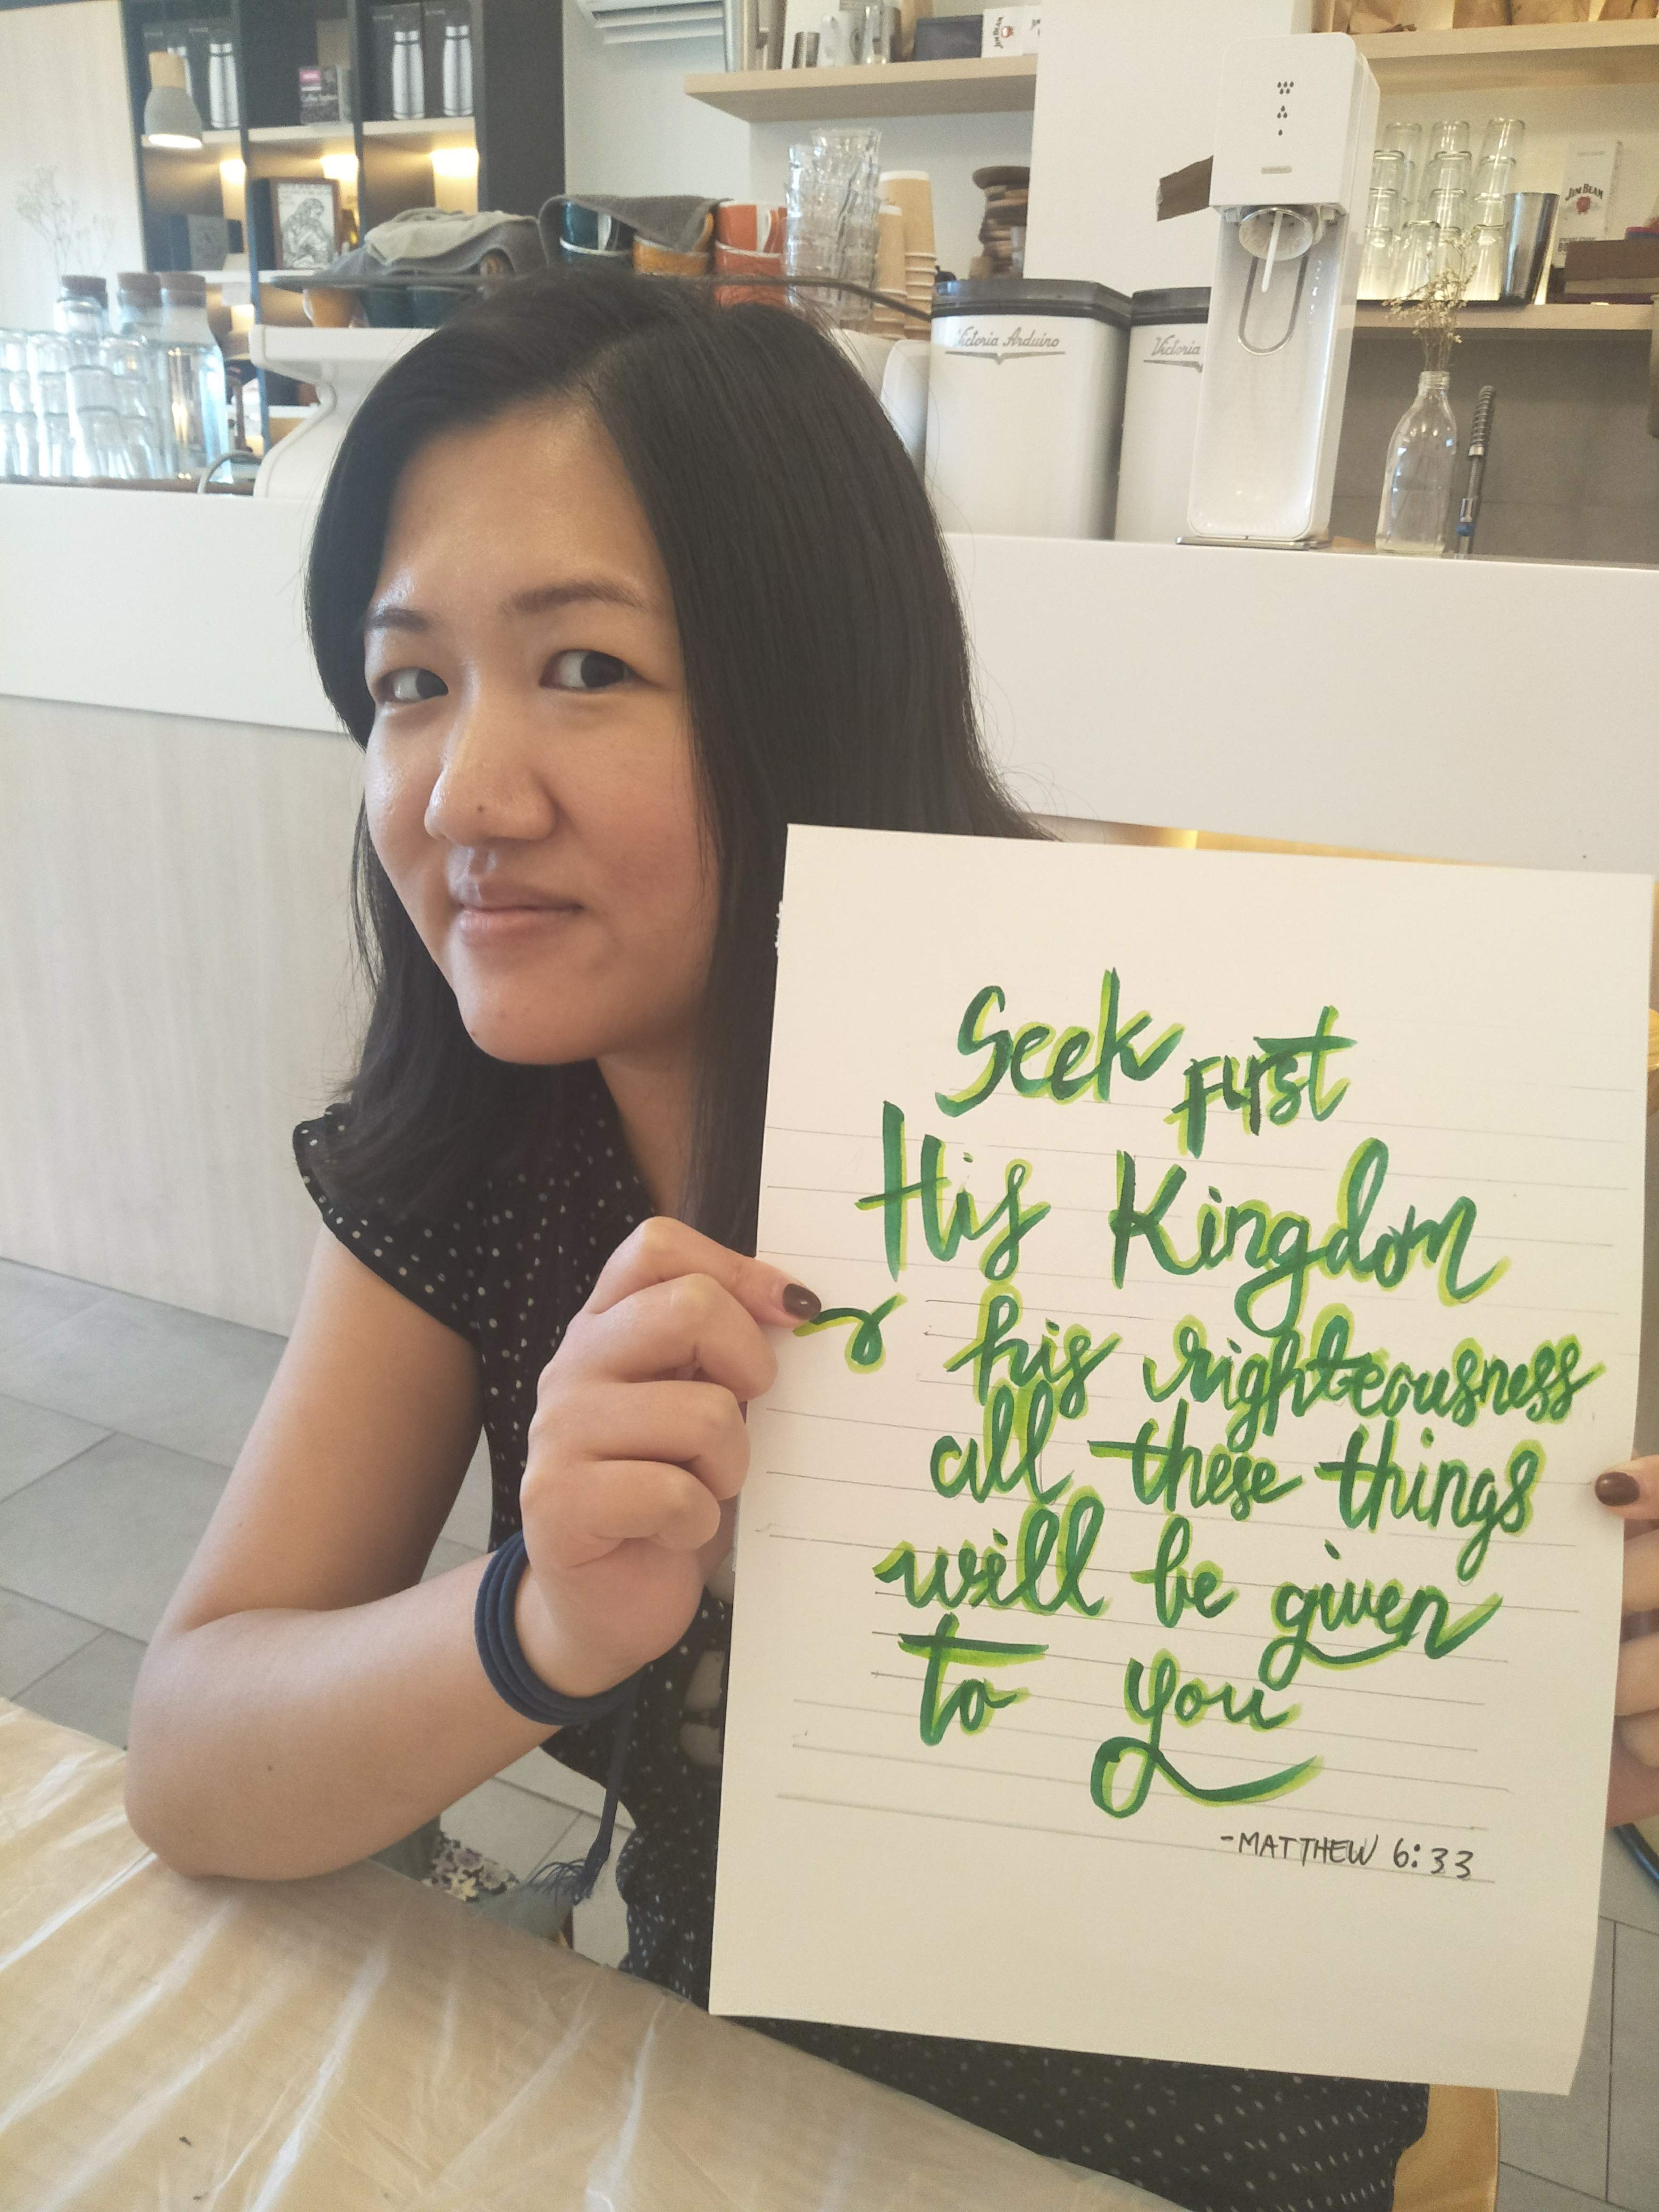 Victoria Arduino
Victoria
JIM BEAM
Seek First
His Kingdom
& his righteousness
all these things
will be given
to you
-MATTHEW 6:33